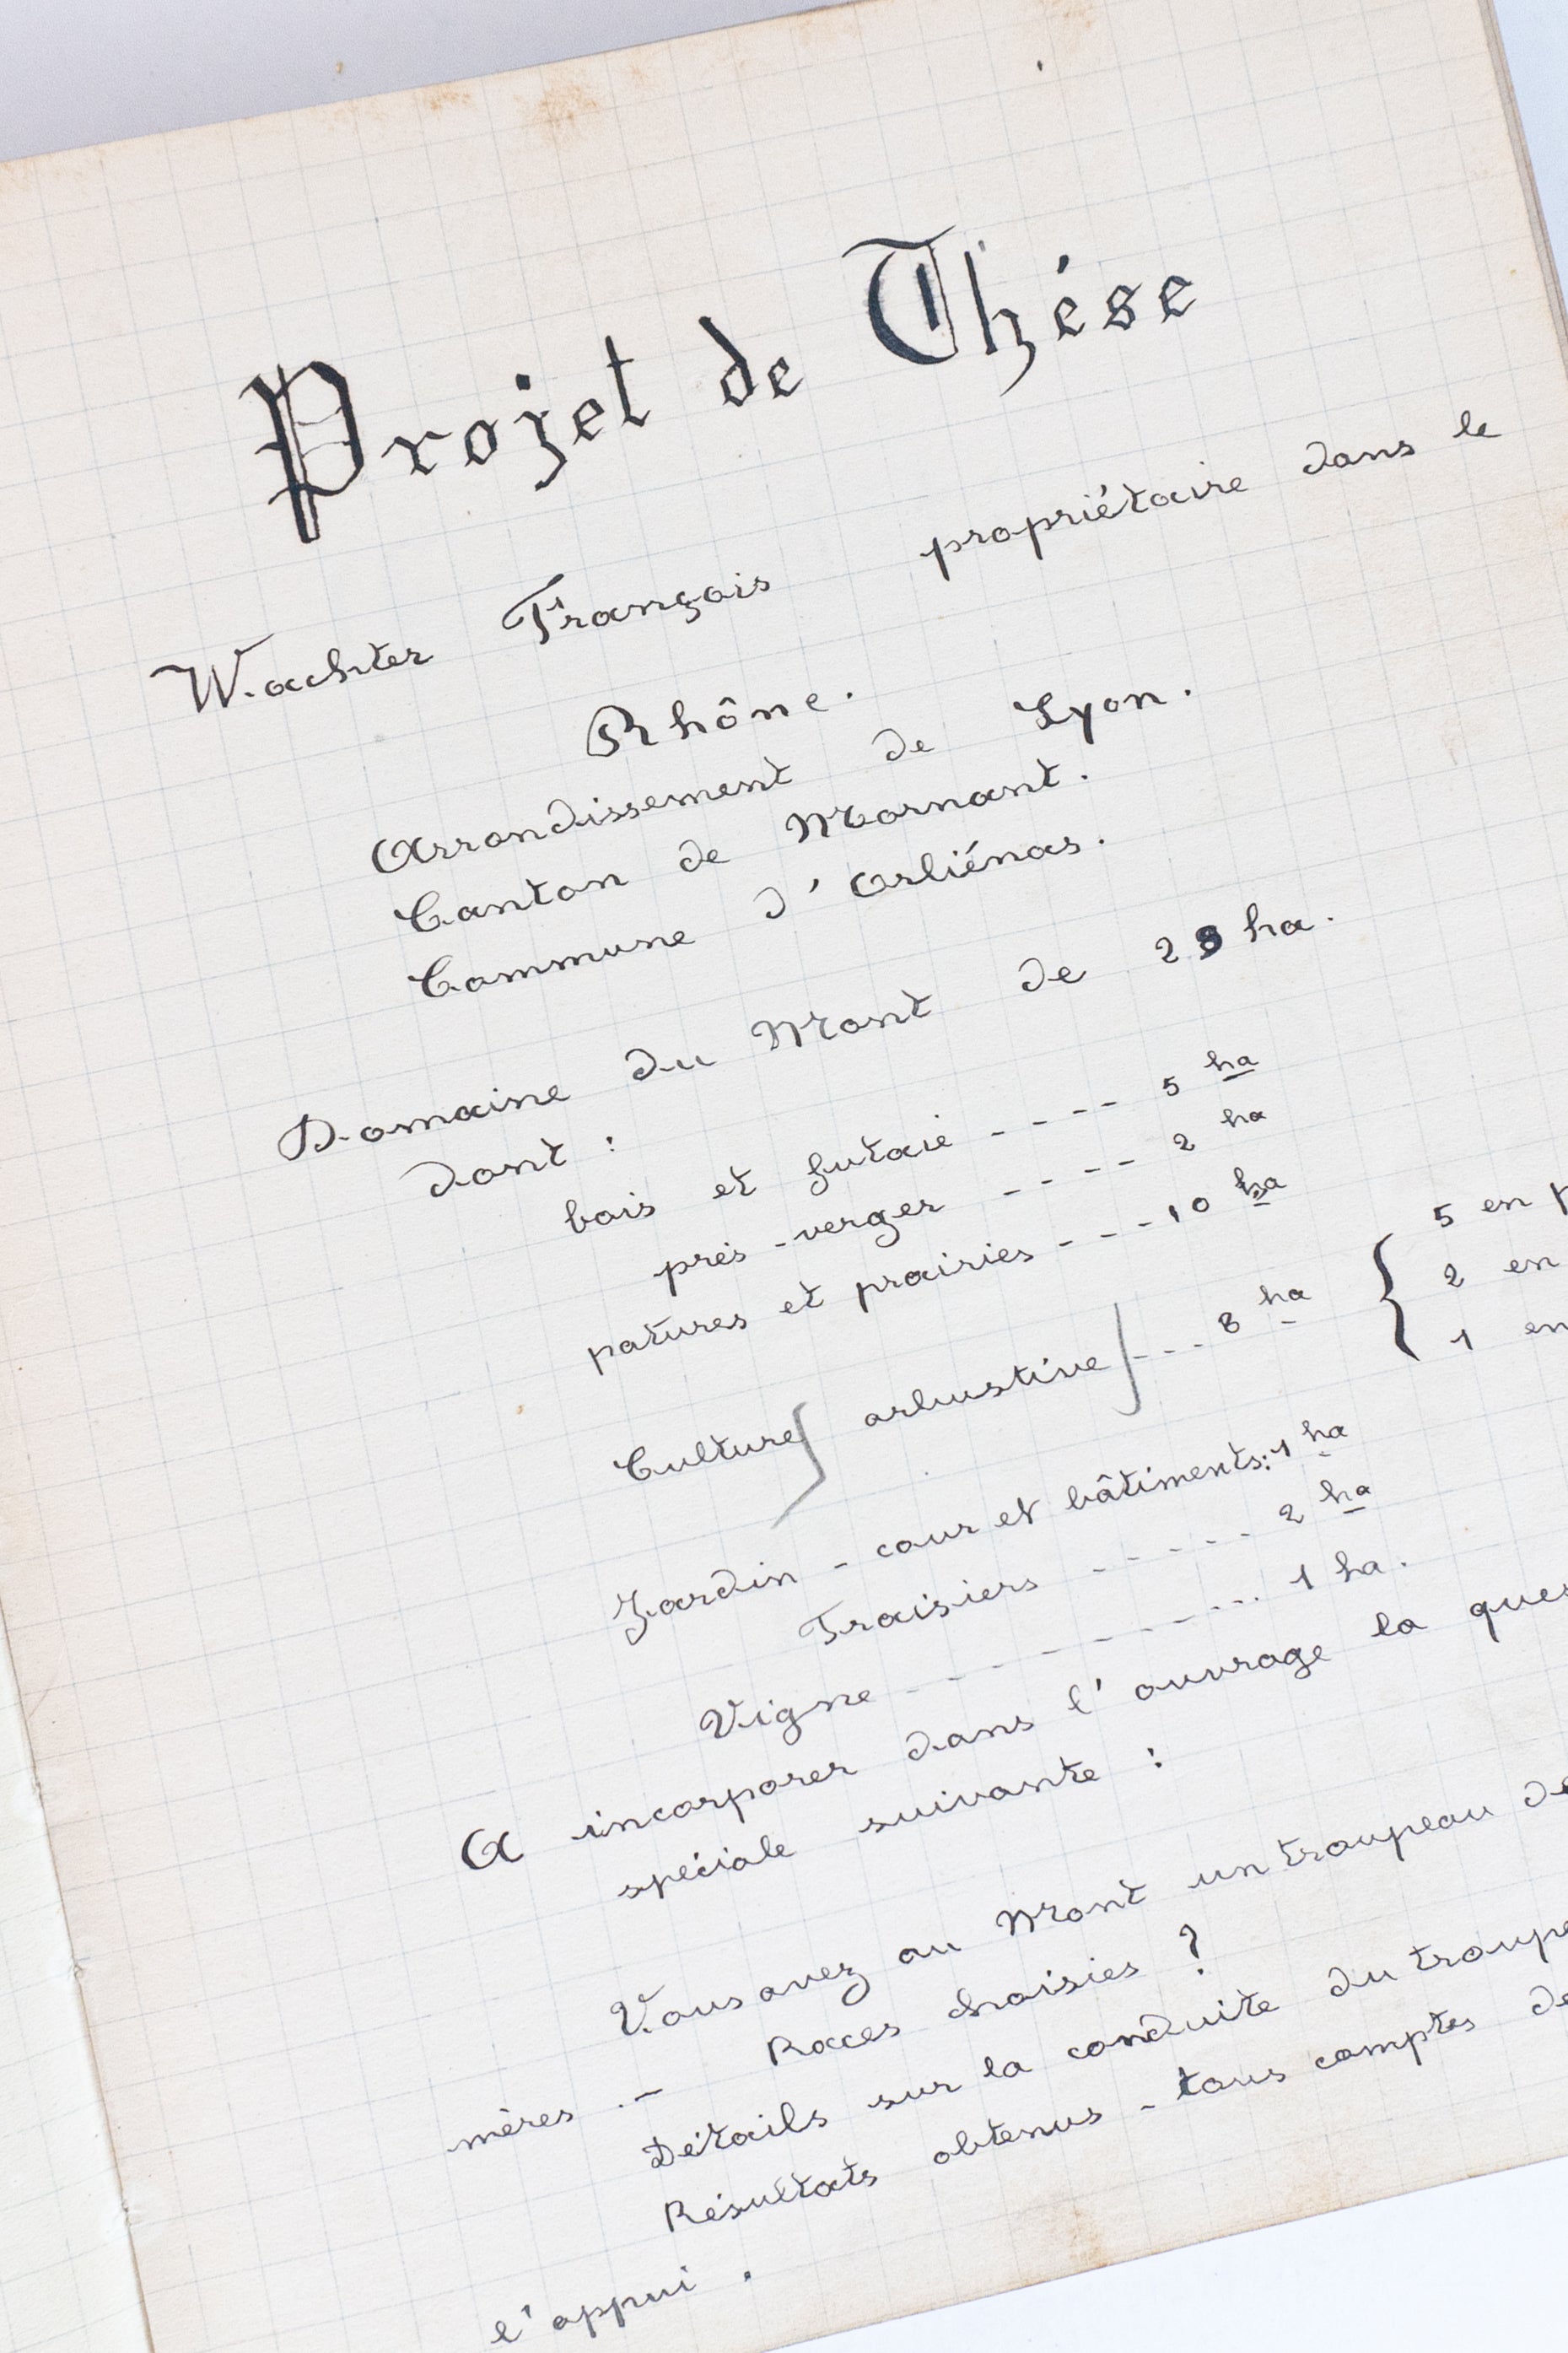 Projet de Thése
Wachter François propriétaire dans le
Rhône.
Arrondissement de Lyon.
Canton de Mornant.
Commune d'Orliénas.
Domaine du Mont de 28 ha.
dont :
bois et futaie ---- 5 ha
prés-verger ---- 2 ha
patures et prairies ---10 ha
Culture arbustive --- 8 ha { 5 en
2 en
1 en
Jardin - cour et bâtiments: 1 ha
Fraisiers ------ 2 ha
Vigne ---------- 1 ha.
A incorporer dans l'ouvrage la
spéciale suivante :
Vous avez au Mont un troupeau de
mères .- Races choisies ?
Détails sur la conduite du
Résultats obtenus - tous comptes
l'appui .